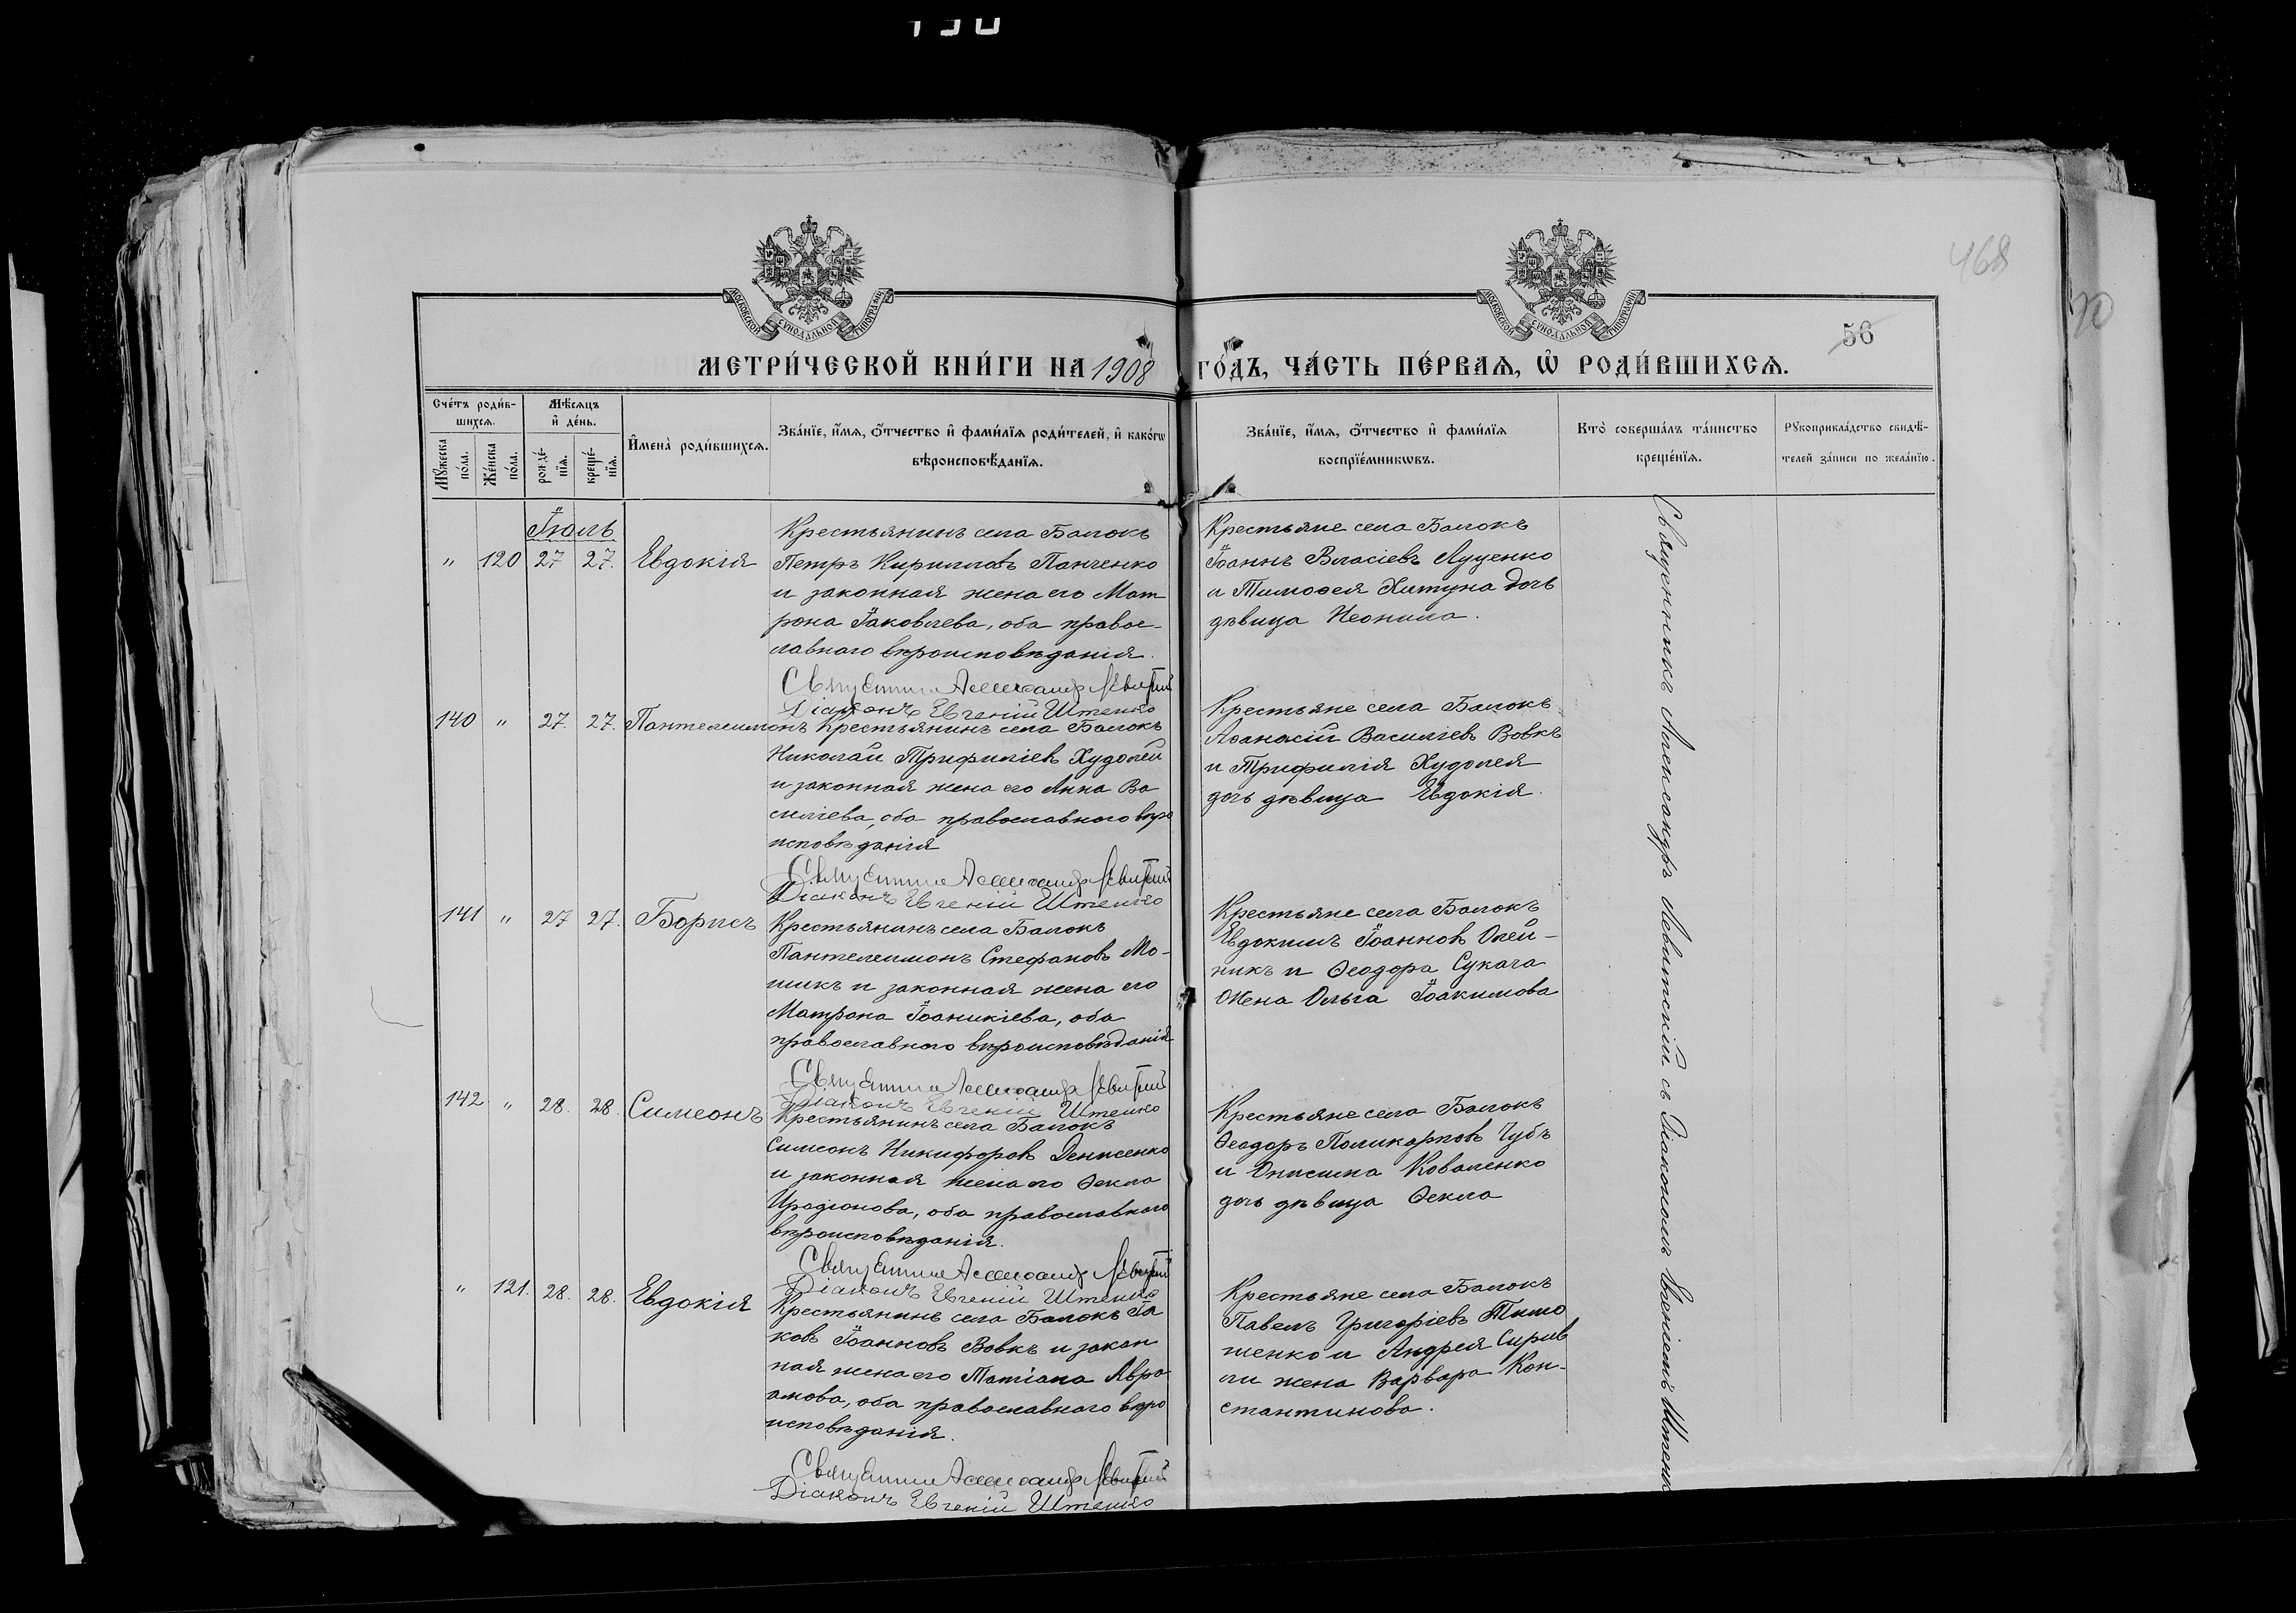 468
56
МОСКОВСКОЙ СѴНОДАЛЬНОЙ ТИПОГРАФІИ
МОСКОВСКОЙ СѴНОДАЛЬНОЙ ТИПОГРАФІИ
МЕТРИ́ЧЕСКОЙ КНИ́ГИ НА 1908 ГО́ДЪ, ЧА́СТЬ ПЕ́РВАѦ, Ѡ҆ РОДИ́ВШИХСѦ.
Сче́тъ роди́в-
шихсѧ.
Мꙋ́жеска по́ла.
Же́нска по́ла.
Мѣ́сѧцъ
и҆ де́нь.
рожде́-
нїѧ.
креще́-
нїѧ.
И҆мена̀ роди́вшихсѧ.
Зва́нїе, и҆́мѧ, ѻ҆́тчество и҆ фами́лїѧ роди́телей, и҆ како́гѡ
вѣроисповѣ́данїѧ.
Зва́нїе, и҆́мѧ, ѻ҆́тчество и҆ фами́лїѧ
воспрїе́мникѡвъ.
Кто̀ соверша́лъ та́инство
креще́нїѧ.
Рꙋкоприкла́дство свидѣ́-
телей за́писи по жела́нїю.
Іюль
" 120 27 27. Евдокія
Крестьянинъ села Балокъ
Петръ Кирилловъ Панченко
и законная жена его Мат
рона Іаковлева, оба правос-
лавнаго вѣроисповѣданія.
Священникъ Александръ Левитскій
Діаконъ Евгеній Штепенко
Крестьяне села Балокъ
Іоаннъ Власіевъ Луценко
и Тимоѳея Хитуна дочь
дѣвица Неонила.
140 " 27. 27. Пантелеимонъ
Крестьянинъ села Балокъ
Николай Трифиліевъ Худолей
и законная жена его Анна Ва
силіева, оба православнаго вѣро
исповѣданія
Священникъ Александръ Левитскій
Діаконъ Евгеній Штепенко
Крестьяне села Балокъ
Аѳанасій Василіевъ Вовкъ
и Трифилія Худолея
дочь дѣвица Евдокія.
141 " 27 27. Борисъ
Крестьянинъ села Балокъ
Пантелеимонъ Стефановъ Мо-
шикъ и законная жена его
Матрона Іоаникіева, оба
православнаго вѣроисповѣданія
Священникъ Александръ Левитскій
Діаконъ Евгеній Штепенко
Крестьяне села Балокъ
Евдокимъ Іоанновъ Олей-
никъ и Ѳеодора Сукача
жена Ольга Іоакимова
142 " 28. 28. Симеонъ
Крестьянинъ села Балокъ
Симеонъ Никифоровъ Денисенко
и законная жена его Ѳекла
Иродіонова, оба православнаго
вѣроисповѣданія.
Священникъ Александръ Левитскій
Діаконъ Евгеній Штепенко
Крестьяне села Балокъ
Ѳеодоръ Поликарповъ Чубъ
и Онисима Коваленко
дочь дѣвица Ѳекла
" 121. 28. 28. Евдокія
Крестьянинъ села Балокъ Іа
ковъ Іоанновъ Вовкъ и закон
ная жена его Татіана Авра
амова, оба православнаго вѣро
исповѣданія.
Священникъ Александръ Левитскій
Діаконъ Евгеній Штепенко
Крестьяне села Балокъ
Павелъ Григоріевъ Тимо
шенко и Андрея Сирив
ли жена Варвара Кон-
стантинова.
Священникъ Александръ Левитскій съ Діакономъ Евгеніемъ